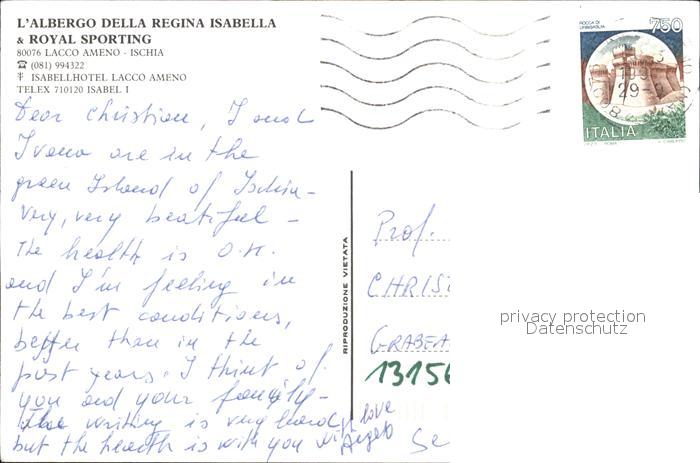 L'ALBERGO DELLA REGINA ISABELLA
& ROYAL SPORTING
80076 LACCO AMENO - ISCHIA
☎ (081) 994322
ISABELLHOTEL LACCO AMENO
TELEX 710120 ISABEL I
Dear Christian, I and
Ivano are in the
green Island of Ischia -
Very, very beatiful -
The health is O.K.
and I'm feeling in
the best conditions,
better than in the
past years. I think of
you and your family -
The writing is very hard,
but the health is with you
love
Angelo
RIPRODUZIONE VIETATA
ROCCA DI URBISAGLIA
750
ITALIA
29-
Prof.
CHRIS
GRABEA
13156
Se
privacy protection
Datenschutz